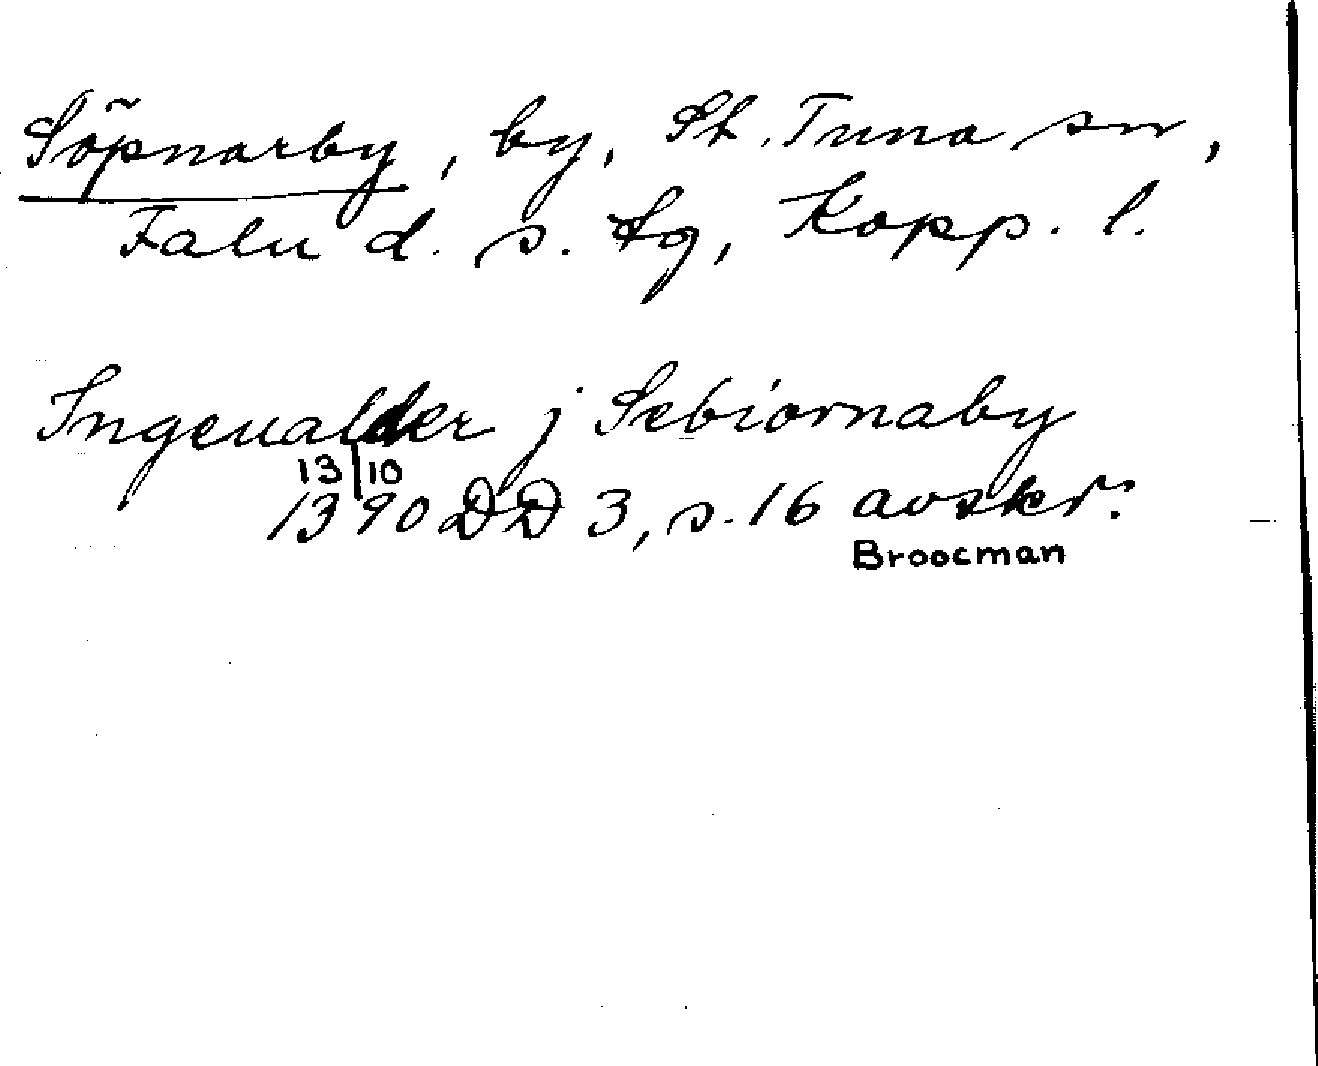 Söpnarby, by, St. Tuna sn,
Falu d. s. tg, Kopp. l.
Ingeualder j Sebiornaby
13/10
1390 DD 3, s. 16 avskr.
Broocman